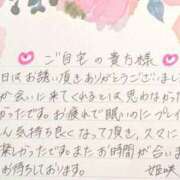 ご自宅の貴方様
日はお誘い頂きありがとうございまし
が会いに来てくれるとは思わなかっ
かったです。お疲れで眠いのにプレイ
ん気持ち良くなって頂き、久々に
楽しかったです。またお時間が合いま
お待ちしております。
姫咲